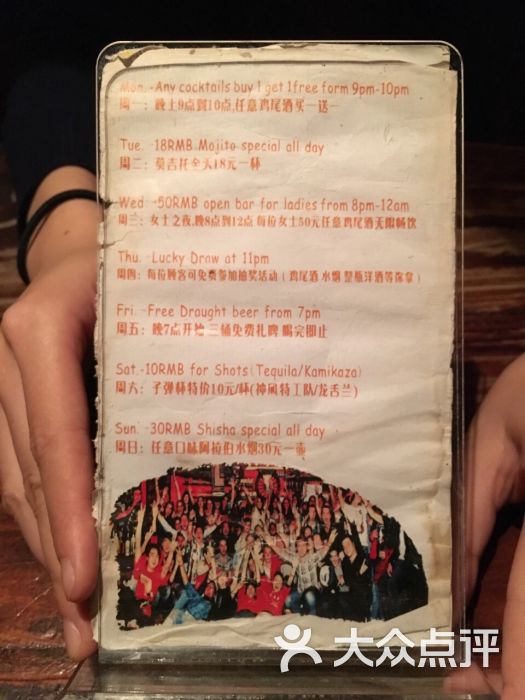 Mon. -Any cocktails buy 1 get 1free form 9pm-10pm
周一：晚上9点到10点,任意鸡尾酒买一送一
Tue. -18RMB Mojito special all day
周二：莫吉托全天18元一杯
Wed -50RMB open bar for ladies from 8pm-12am
周三：女士之夜,晚8点到12点 每位女士50元任意鸡尾酒无限畅饮
Thu. -Lucky Draw at 11pm
周四：每位顾客可免费参加抽奖活动（鸡尾酒 水烟 整瓶洋酒等你拿）
Fri. -Free Draught beer from 7pm
周五：晚7点开始 三桶免费扎啤 喝完即止
Sat.-10RMB for Shots(Tequila/Kamikaza)
周六：子弹杯特价10元/杯(神风特工队/龙舌兰)
Sun. -30RMB Shisha special all day
周日：任意口味阿拉伯水烟30元一壶
大众点评